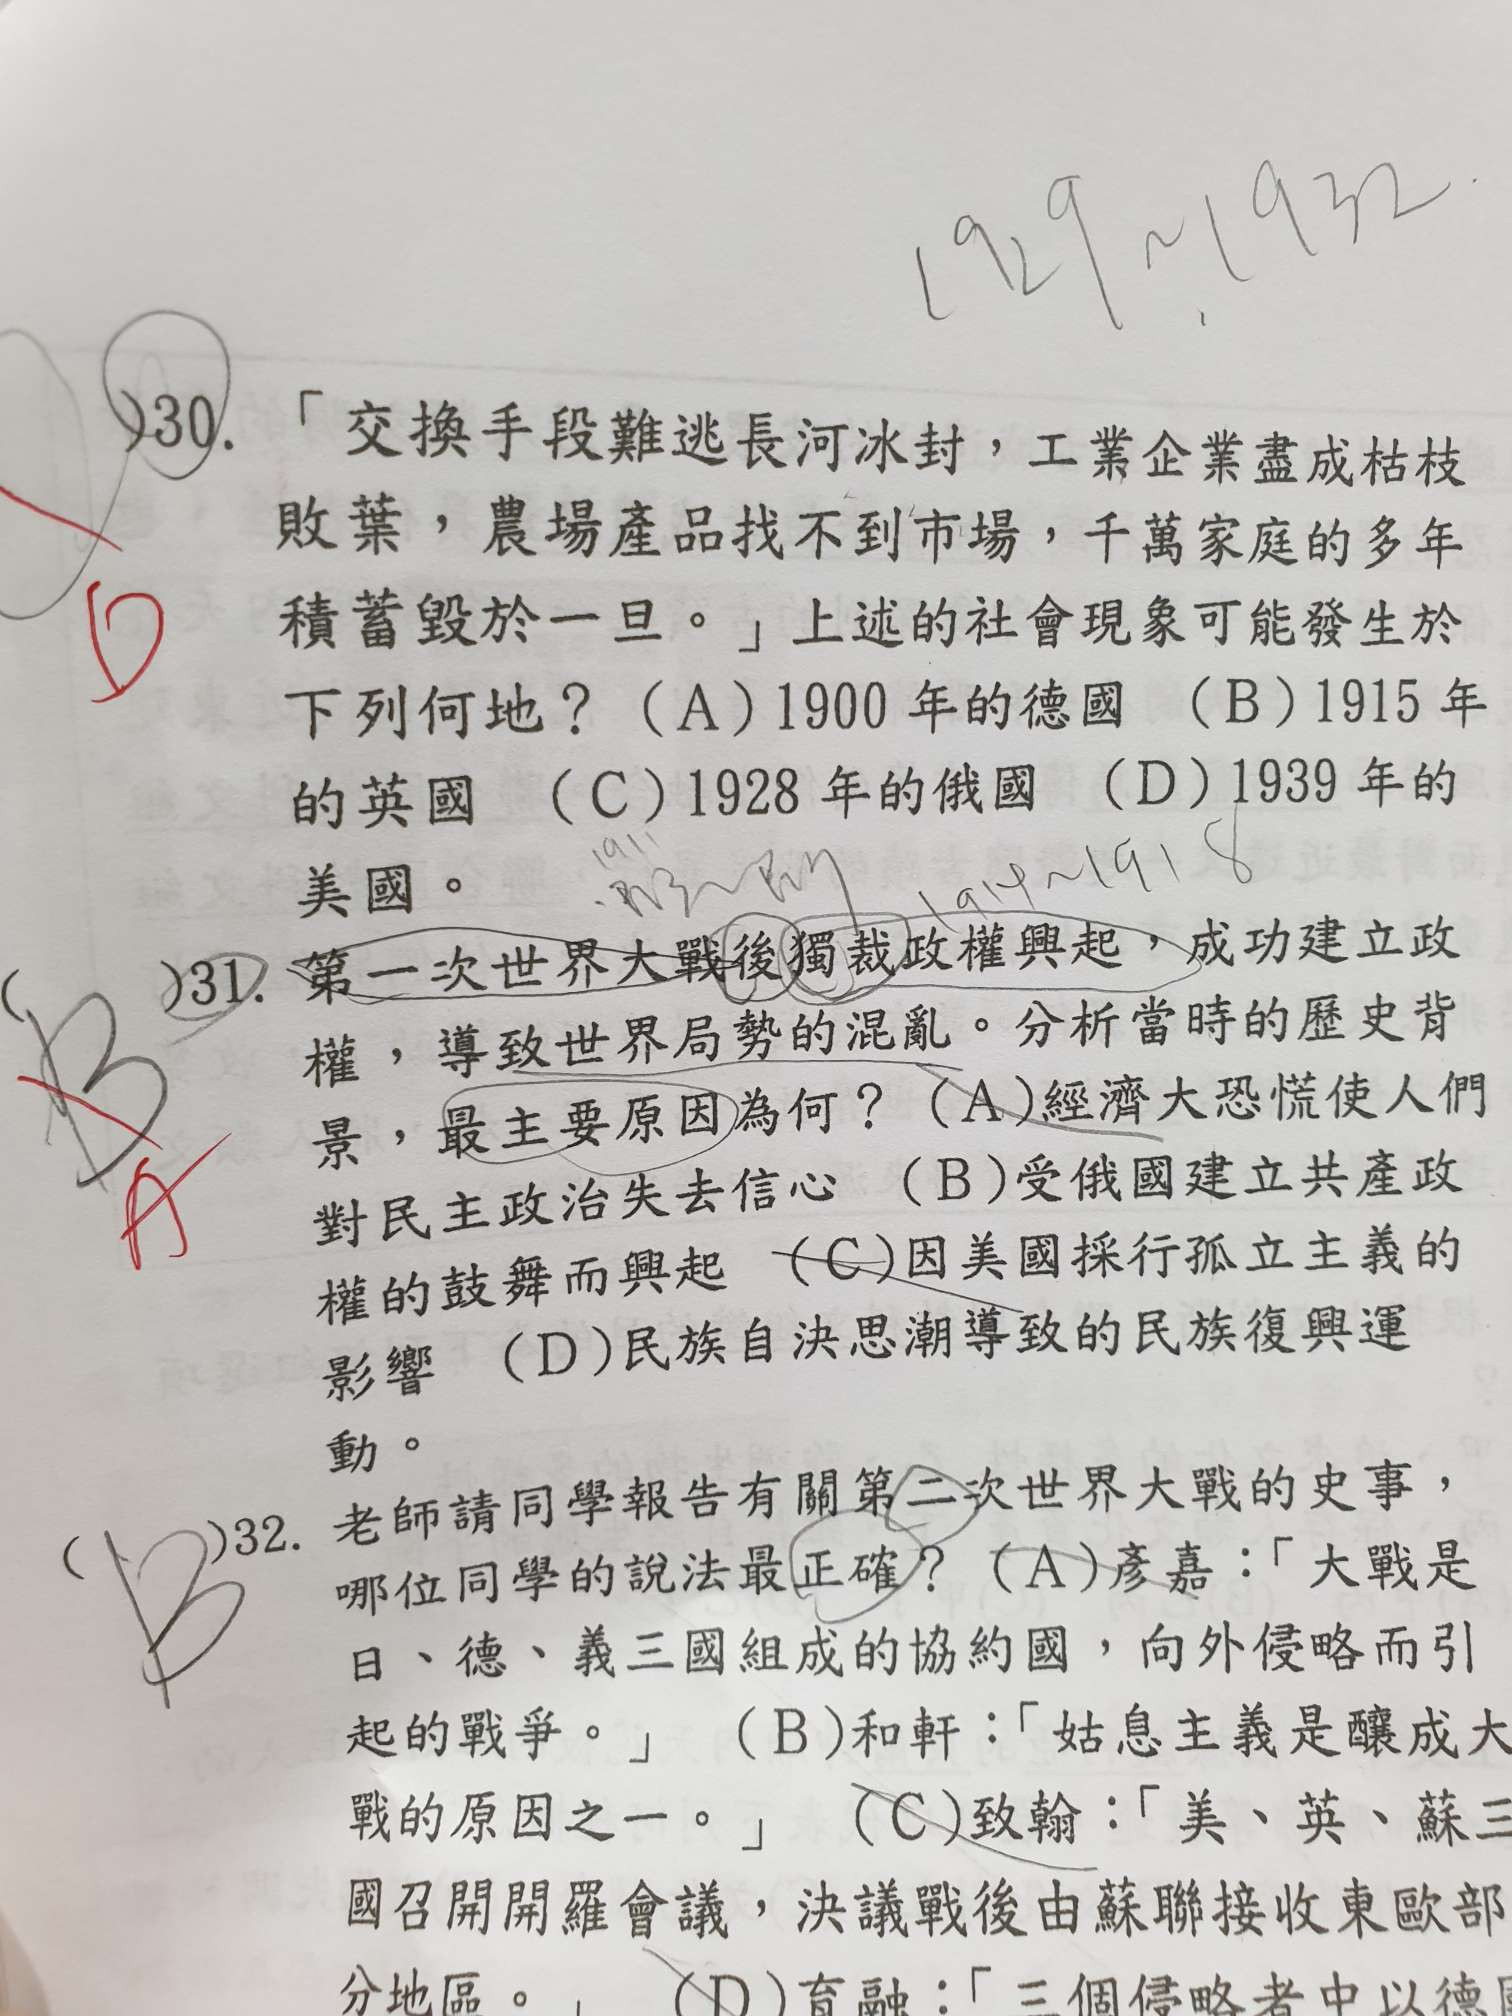 1929～1932
)30. 「交換手段難逃長河冰封，工業企業盡成枯枝
敗葉，農場產品找不到市場，千萬家庭的多年
D
積蓄毀於一旦。」上述的社會現象可能發生於
下列何地？(A)1900 年的德國 (B)1915 年
的英國 (C)1928 年的俄國 (D)1939 年的
美國。
1911
1914～1918
( B )31. 第一次世界大戰後獨裁政權興起，成功建立政
權，導致世界局勢的混亂。分析當時的歷史背
A
景，最主要原因為何？(A)經濟大恐慌使人們
對民主政治失去信心 (B)受俄國建立共產政
權的鼓舞而興起 (C)因美國採行孤立主義的
影響 (D)民族自決思潮導致的民族復興運
動。
( B )32. 老師請同學報告有關第二次世界大戰的史事，
哪位同學的說法最正確？(A)彥嘉：「大戰是
日、德、義三國組成的協約國，向外侵略而引
起的戰爭。」 (B)和軒：「姑息主義是釀成大
戰的原因之一。」 (C)致翰：「美、英、蘇三
國召開開羅會議，決議戰後由蘇聯接收東歐部
分地區。」 (D)育融：「三個侵略者中以德